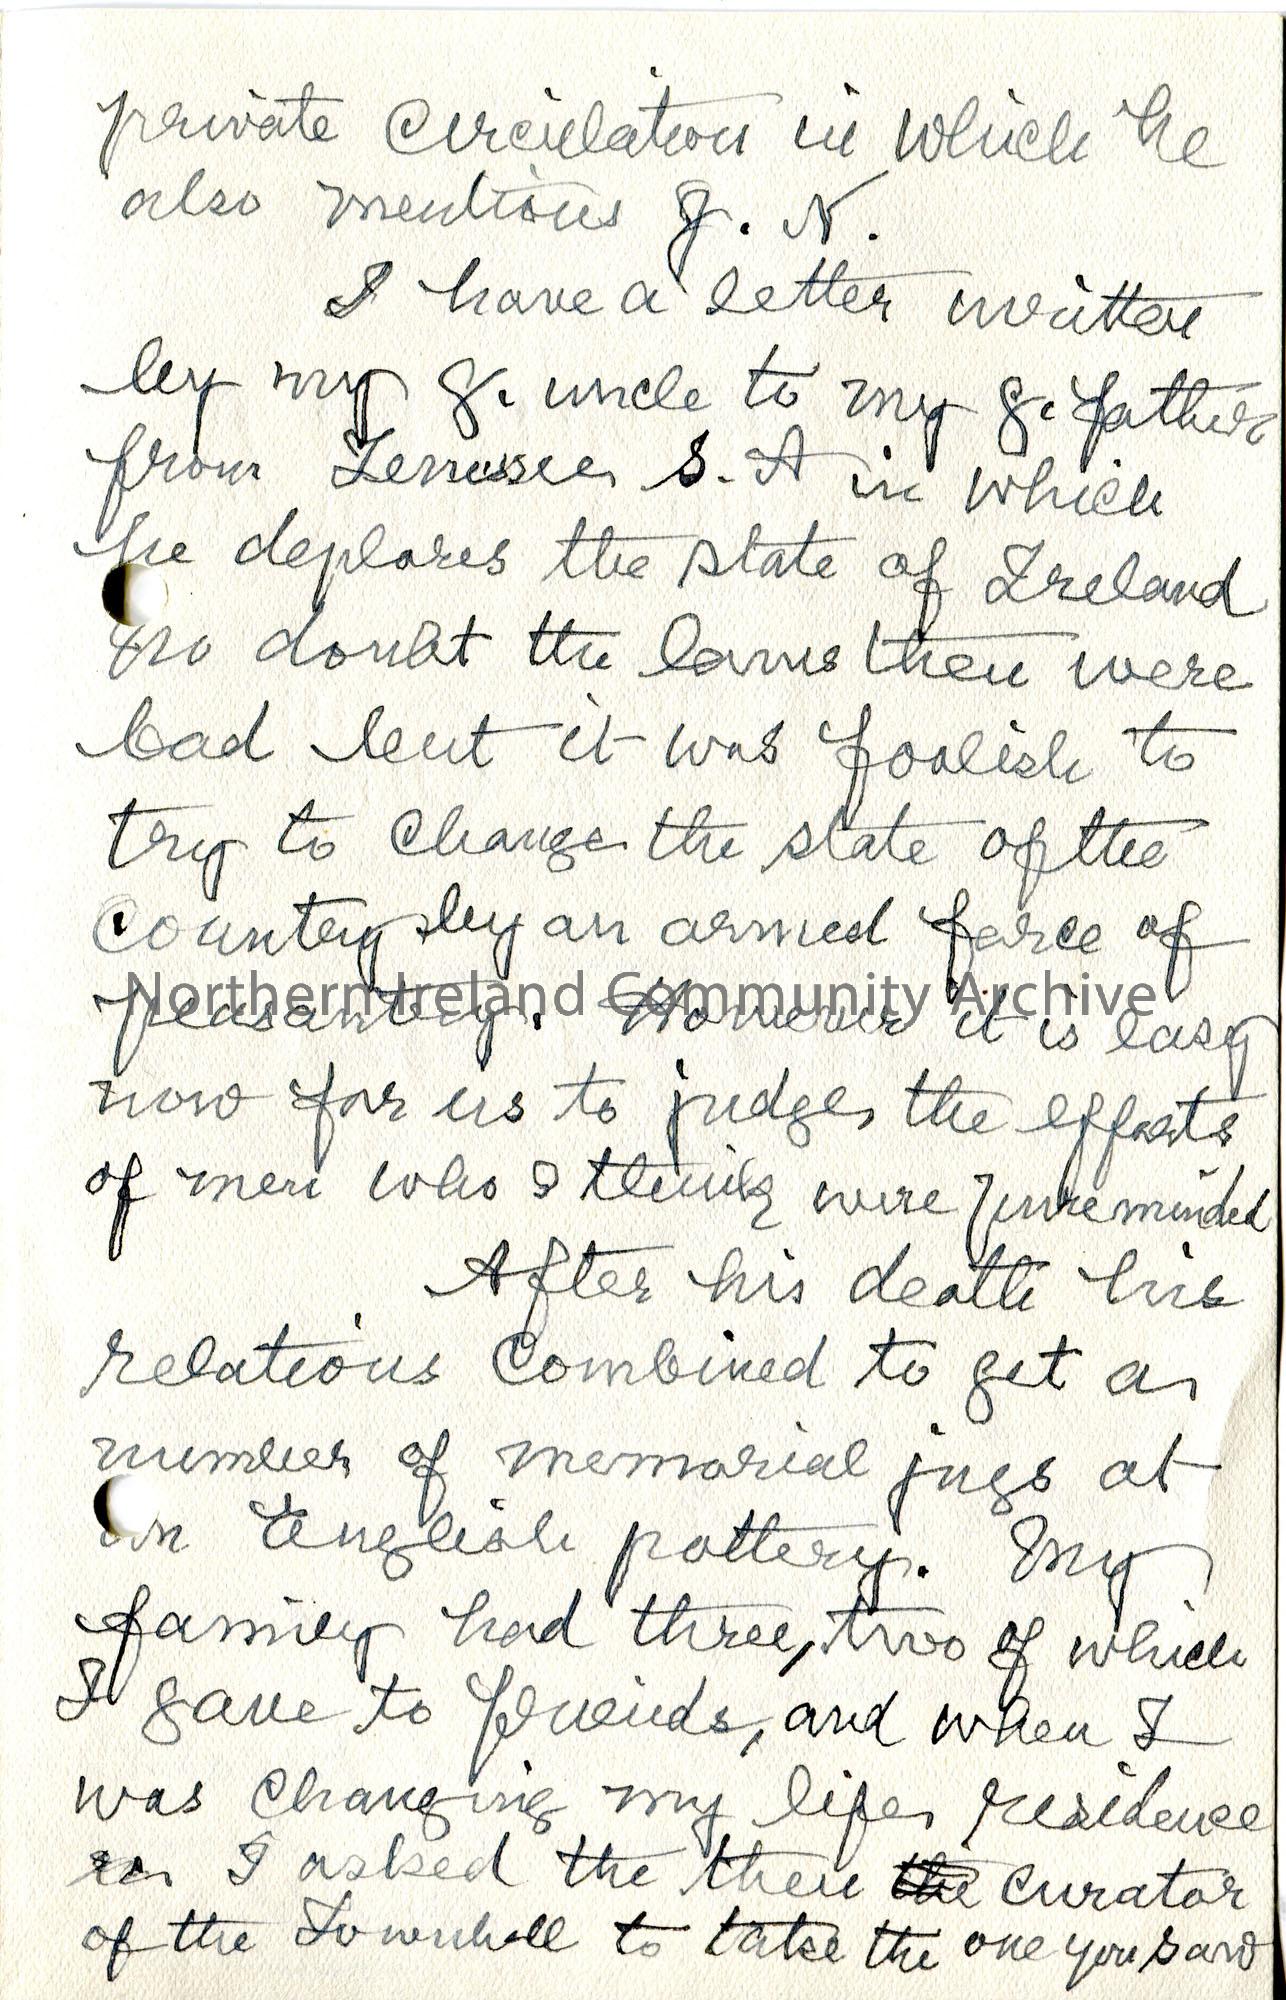 private circulation in which he
also mentions J. N.
I have a letter written
by my g. uncle to my g. father
from Tennessee S. A in which
he deplores the state of Ireland
no doubt the laws then were
bad but it was foolish to
try to change the state of the
country by an armed force of
Northern Ireland Community Archive
peasantry. However it is easy
now for us to judge the efforts
of men who I think were pure minded
After his death his
relations combined to get a
number of memorial jugs at
an English pottery. My
family had three, two of which
I gave to friends, and when I
was changing my life residence
I asked the then the curator
of the Townhall to take the one you saw